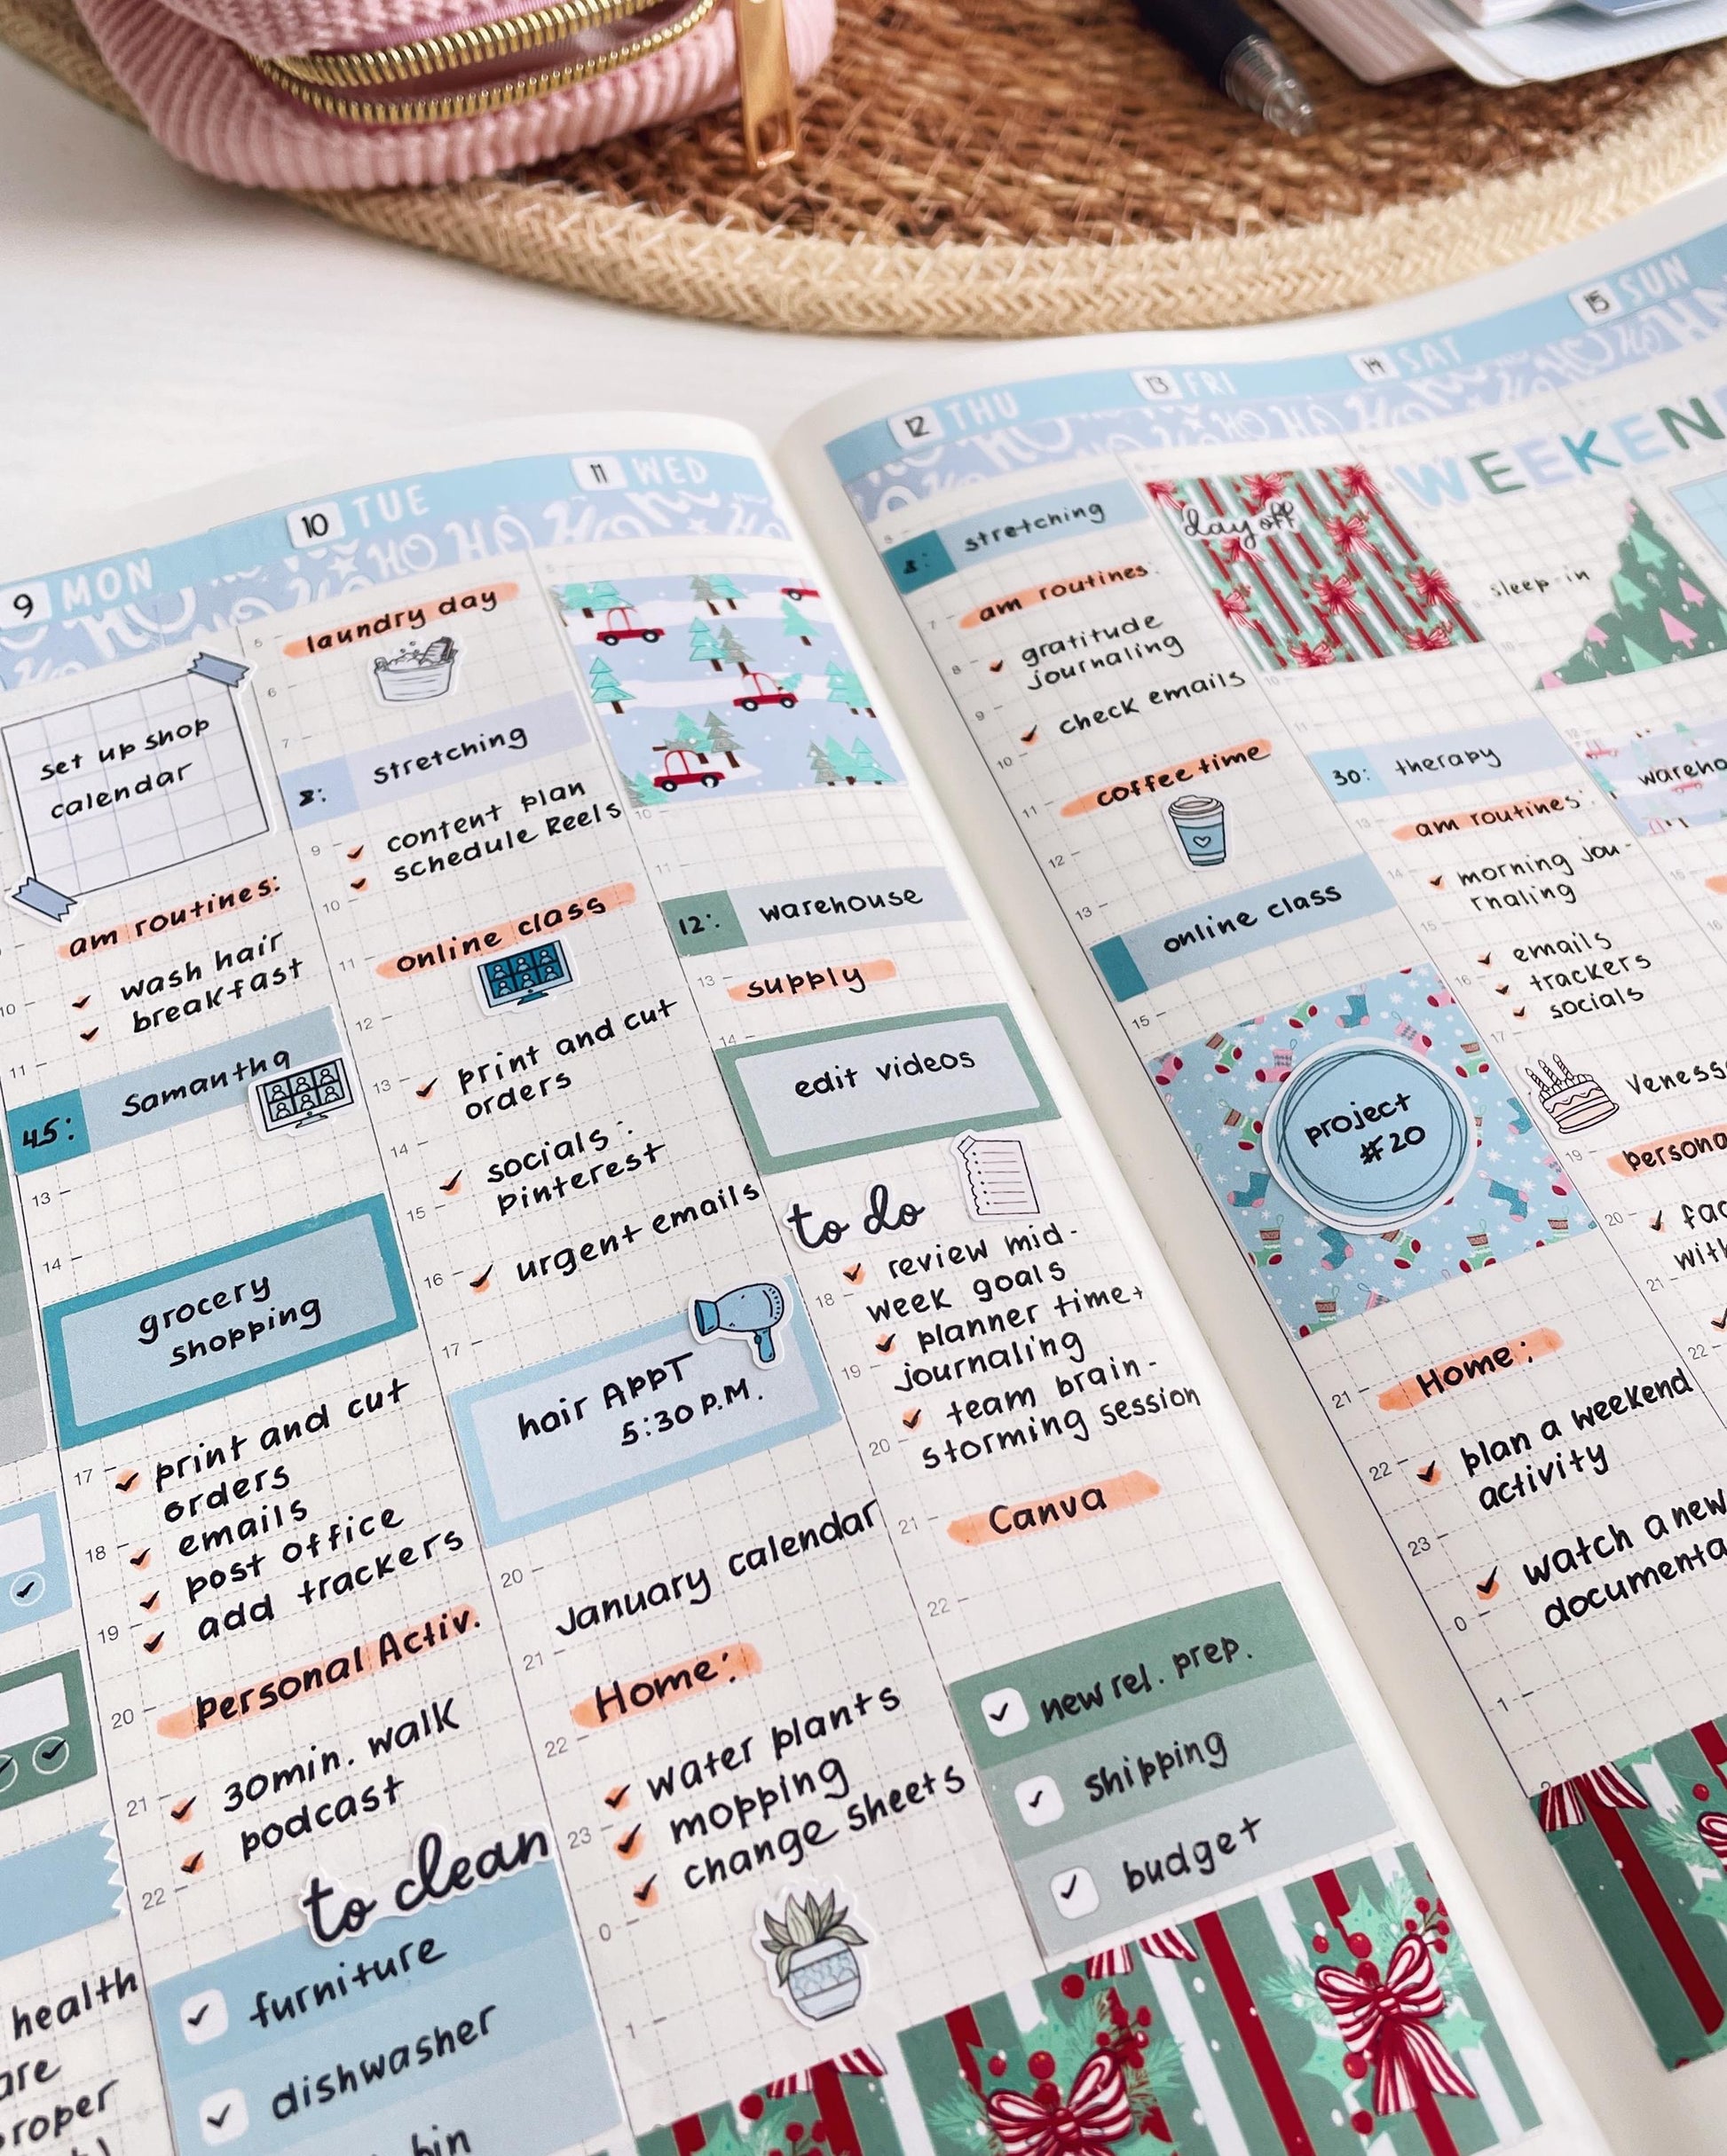 9 MON
set up shop
calendar
am routines:
wash hair
breakfast
11
45: Samantha
13
14
grocery
shopping
17
print and cut
orders
18
emails
post office
19
add trackers
20
Personal Activ.
21
30min. walk
podcast
22
to clean
furniture
dishwasher
bin
health
10 TUE
5
laundry day
6
7
8: stretching
9
content plan
schedule Reels
10
online class
11
12
13
print and cut
orders
14
socials:
pinterest
15
16
urgent emails
17
hair APPT
5:30 P.M.
20
January calendar
21
Home:
22
water plants
mopping
23
change sheets
0
1
11 WED
10
11
12: warehouse
13
supply
14
edit videos
to do
review mid-
18
week goals
planner time+
19
journaling
team brain-
20
storming session
21
Canva
22
new rel. prep.
shipping
budget
12 THU
8: stretching
7
am routines
8
gratitude
journaling
9
10
check emails
11
coffee time
12
13
online class
15
project
#20
21
Home:
22
plan a weekend
activity
23
watch a new
0
documenta
1
2
13 FRI
day off
10
11
30: therapy
13
am routines:
14
morning jou-
rnaling
15
16
emails
trackers
socials
17
19
20
21
22
14 SAT
15 SUN
WEEKEN
sleep-in
wareho